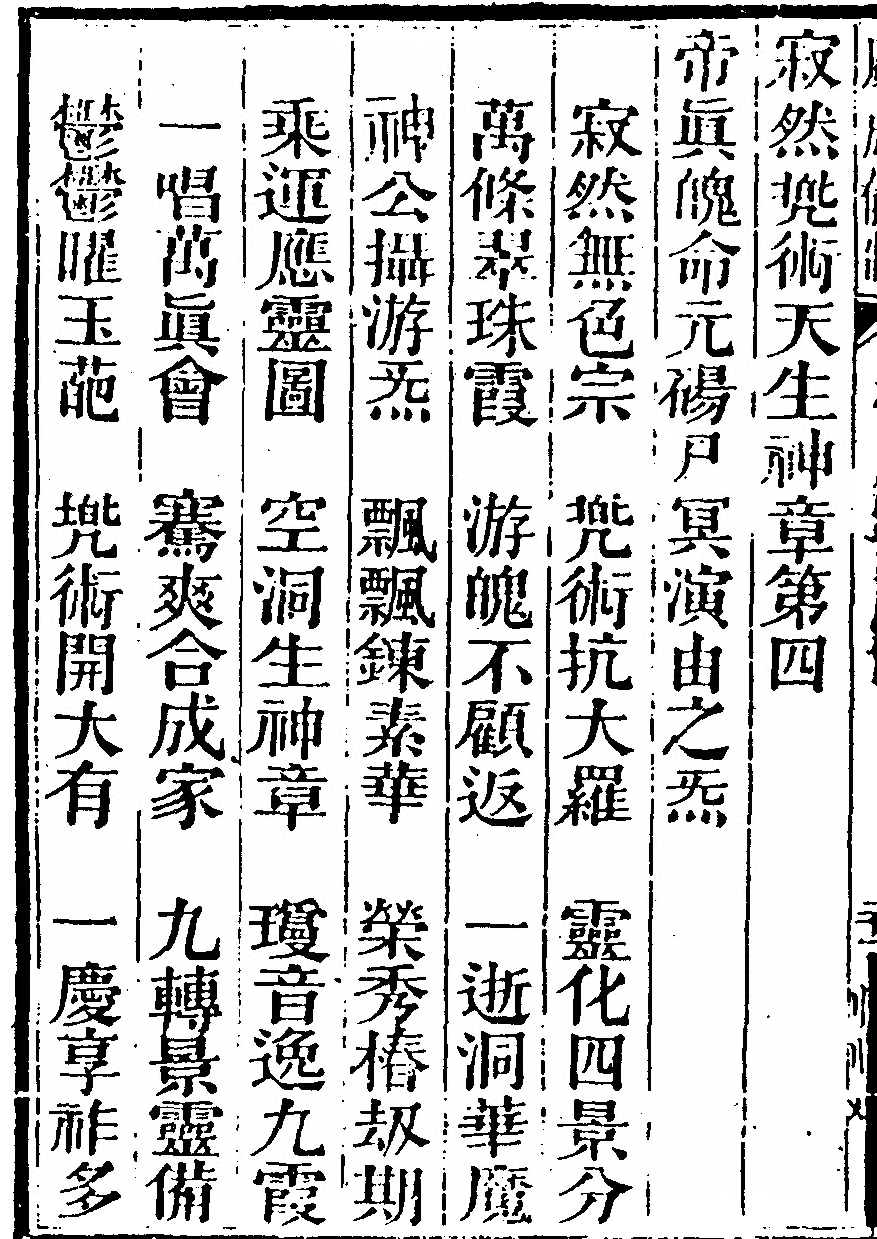 寂然兠術天生神章第四
帝眞魄命元碭尸冥演由之炁
寂然無色宗 兠術抗大羅 靈化四景分
萬條翠珠霞 游魄不顧返 一逝洞華魔
神公攝游炁 飄飄鍊素華 榮秀椿刼期
乘運應靈圖 空洞生神章 瓊音逸九霞
一唱萬眞會 騫爽合成家 九轉景靈備
鬱鬱曜玉葩 兠術開大有 一慶享祚多